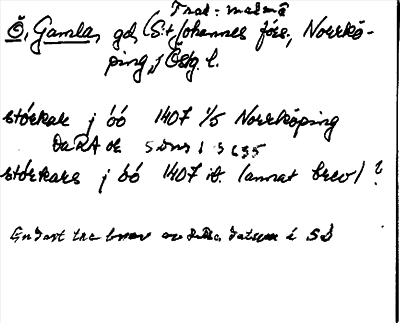 Trol: malmö
Ö, Gamla, gd, (S:t Johannes förs., Norrkö-
ping,) Östg. l.
störkar j öó 1407 1/5 Norrköping
DaRA or SDns 1 s 635
störkars j öó 1407 it. (annat brev) ?
Endast tre brev av detta datum i SD